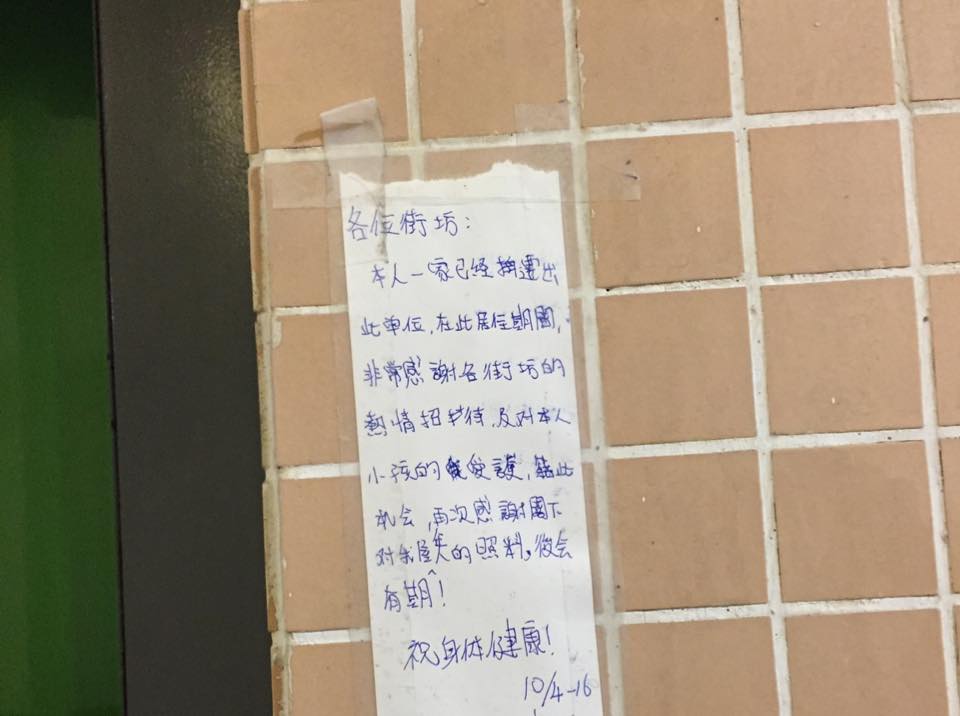 各位街坊：
本人一家已经搬遷出
此单位，在此居住期間，
非常感謝各街坊的
熱情招待，及对本人
小孩的愛護，藉此
机会，再次感謝閣下
对我屋人的照料。後会
有期！
祝身体健康！
10/4-16